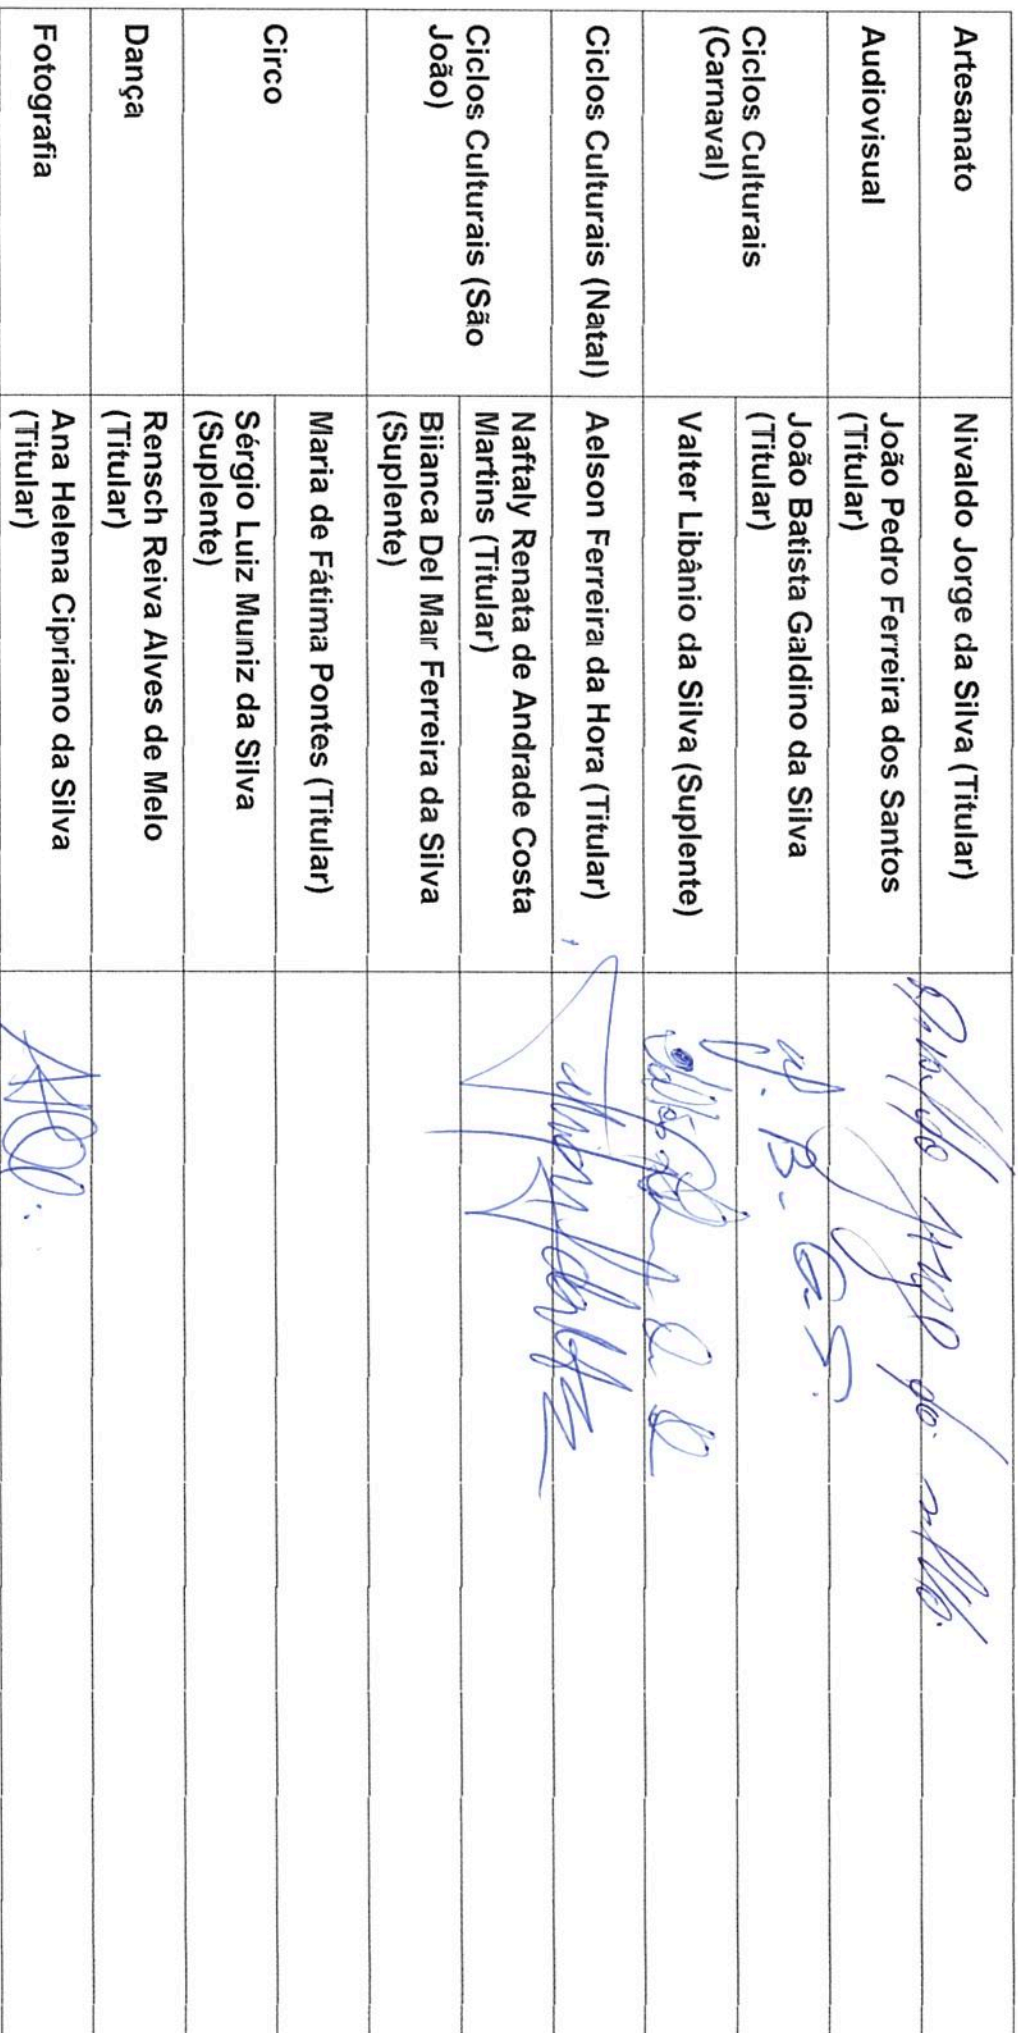 Artesanato
Nivaldo Jorge da Silva (Titular)
Audiovisual
João Pedro Ferreira dos Santos
(Titular)
Ciclos Culturais
(Carnaval)
João Batista Galdino da Silva
(Titular)
J. B. G. S.
Valter Libânio da Silva (Suplente)
Ciclos Culturais (Natal)
Aelson Ferreira da Hora (Titular)
Ciclos Culturais (São
João)
Naftaly Renata de Andrade Costa
Martins (Titular)
Biianca Del Mar Ferreira da Silva
(Suplente)
Circo
Maria de Fátima Pontes (Titular)
Sérgio Luiz Muniz da Silva
(Suplente)
Dança
Rensch Reiva Alves de Melo
(Titular)
Fotografia
Ana Helena Cipriano da Silva
(Titular)